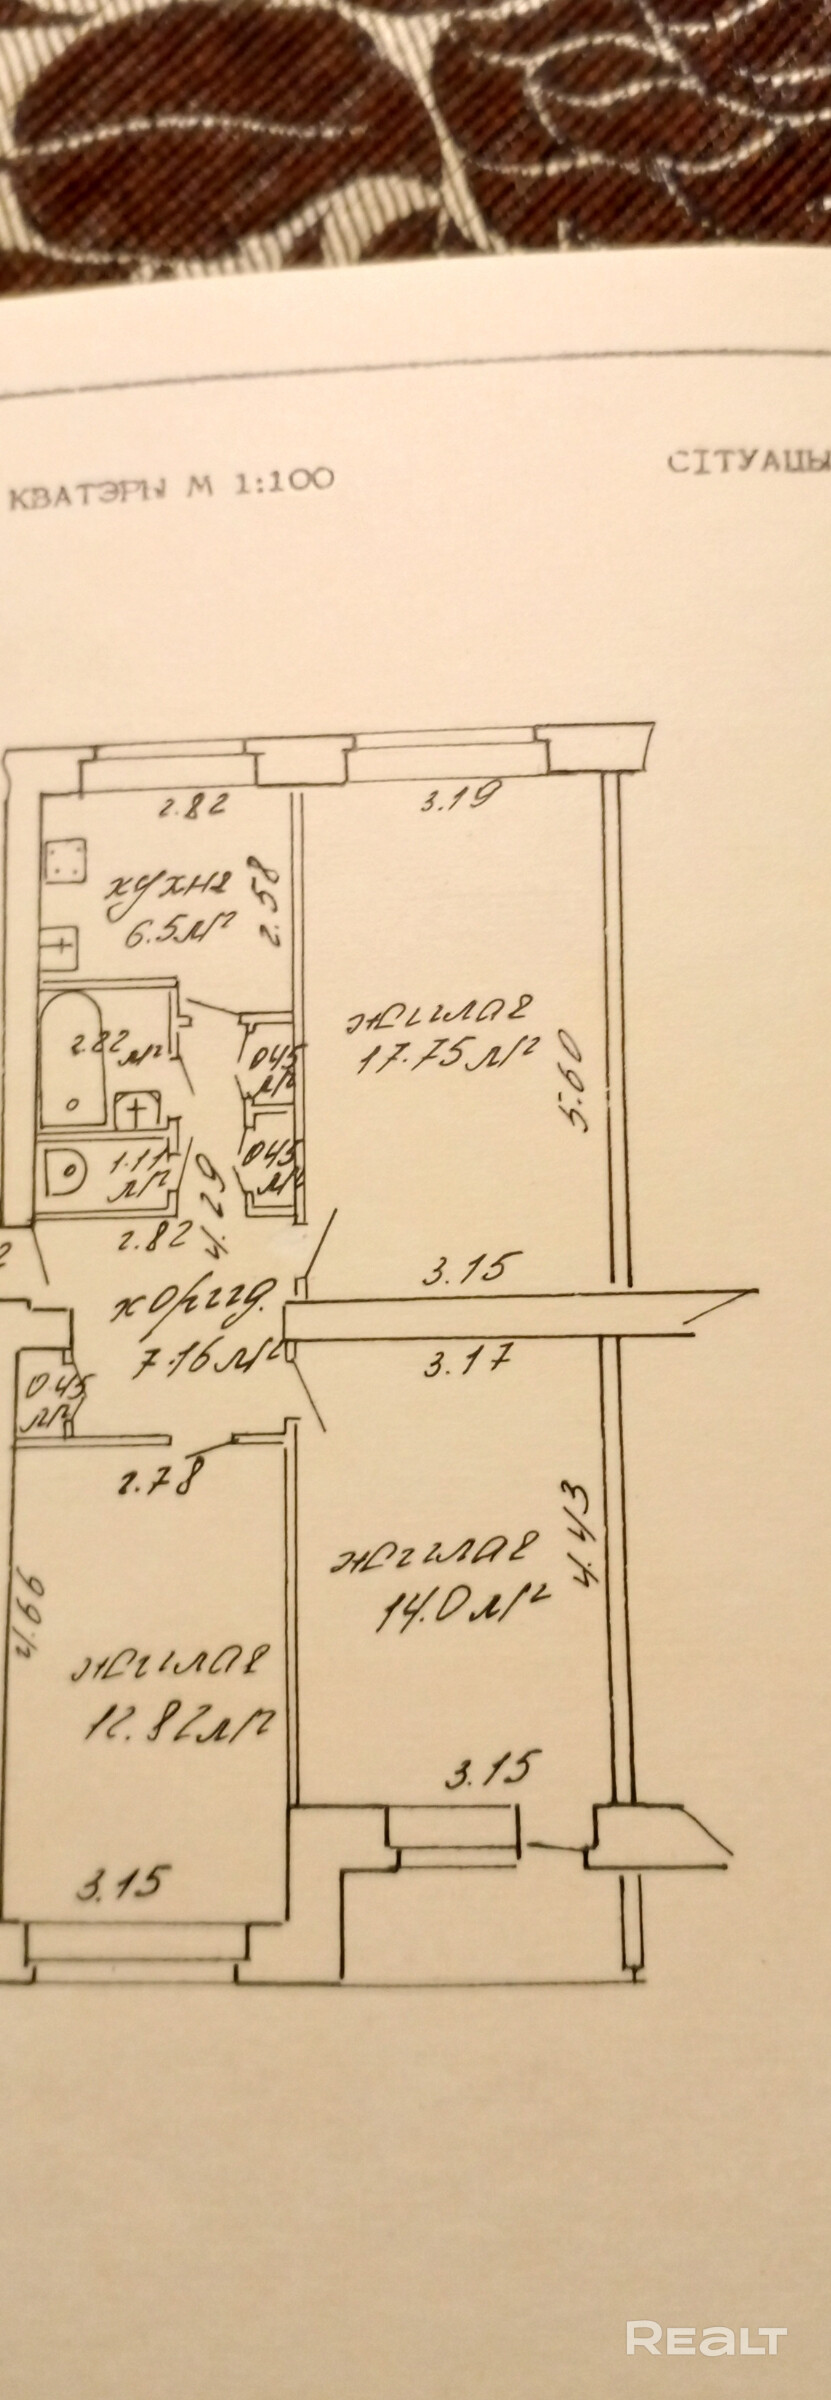 КВАТЭРЫ М 1:100
СІТУАЦЫ
2.82
3.19
кухня
6.5 м²
2.58
2.22 м²
0.45 м²
жилая
17.75 м²
5.60
1.11 м²
0.45 м²
2.82
3.15
коридр.
7.16 м²
3.17
0.45 м²
2.78
4.43
жилая
14.0 м²
4.66
жилая
12.82 м²
3.15
3.15
REALT